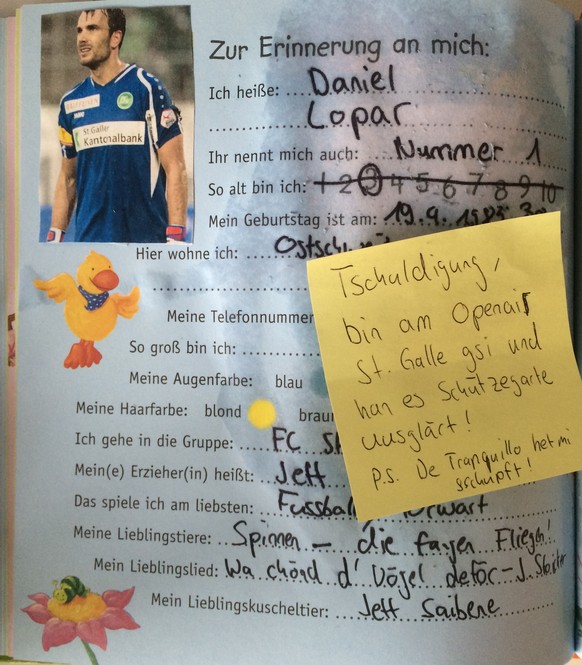 St.Galler
Kantonalbank
Zur Erinnerung an mich:
Ich heiße: Daniel
Lopar
Ihr nennt mich auch: Nummer 1
So alt bin ich: 1 2 3 4 5 6 7 8 9 10
Mein Geburtstag ist am: 19.4.
Hier wohne ich:
Meine Telefonnummer
So groß bin ich:
Meine Augenfarbe: blau
Meine Haarfarbe: blond
Ich gehe in die Gruppe: FC
Mein(e) Erzieher(in) heißt: Jeff
Das spiele ich am liebsten: Fussball
Meine Lieblingstiere: Spinnen – die fangen Fliegen!
Mein Lieblingslied: Wa chönd d' Vögel deför - J.
Mein Lieblingskuscheltier: Jeff Saibene
Tschuldigung,
bin am Openair
St. Galle gsi und
han es Schützegarte
usglärt!
P.S. De Tranquillo het mi
gschupft!